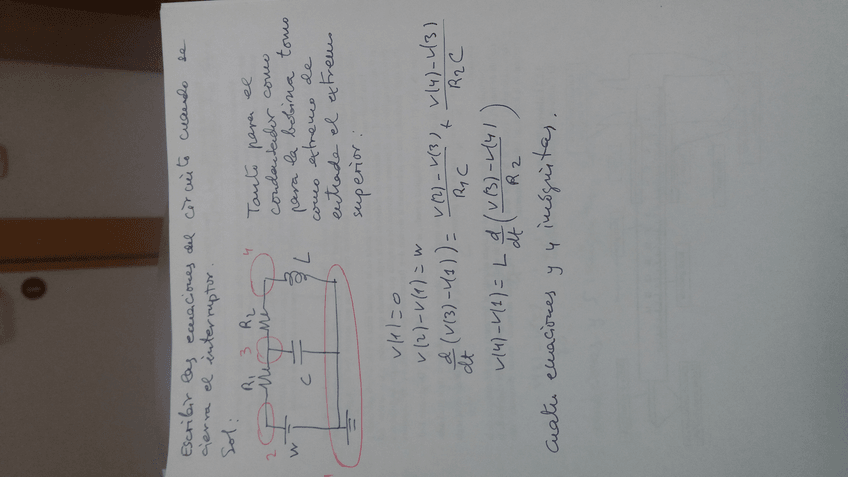 Escribir las ecuaciones del circuito cuando se
cierra el interruptor.
Sol:
R1
R2
2
3
4
W
C
L
Tanto para el
condensador como
para la bobina tomo
como extremo de
entrada el extremo
superior:
V(1)=0
V(2)-V(1)=W
d/dt (V(3)-V(1)) = (V(2)-V(3))/(R1C) + (V(4)-V(3))/(R2C)
V(4)-V(1)= L d/dt ((V(3)-V(4))/R2)
Cuatro ecuaciones y 4 incógnitas.